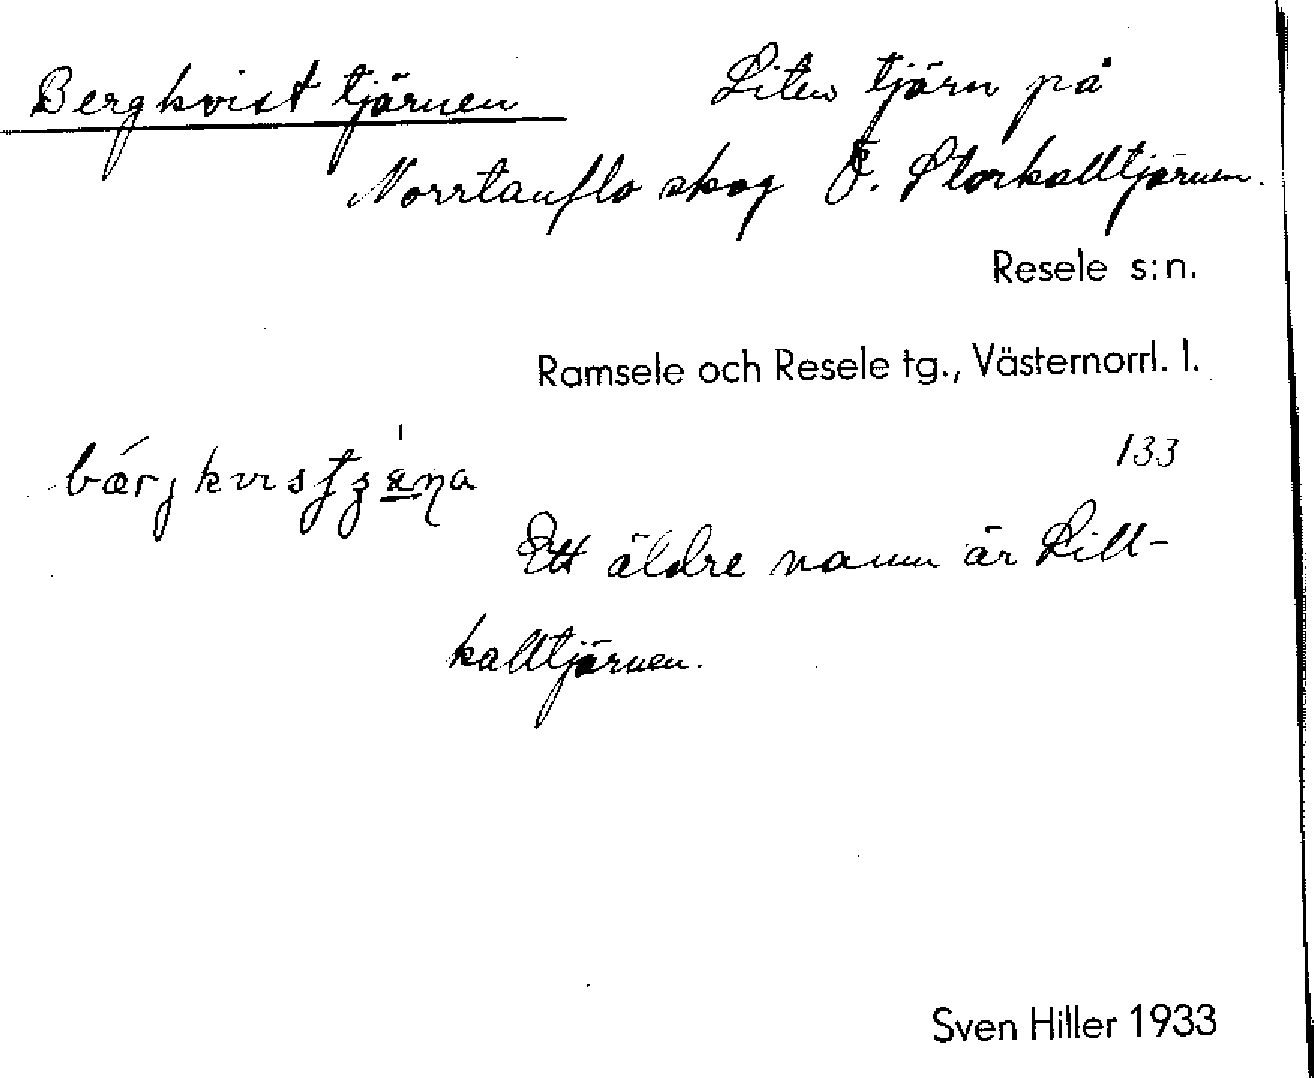 Bergkvisttjärnen Liten tjärn på
Norrtanflo skog Ö. Storkalltjärnen.
Resele s:n.
Ramsele och Resele tg., Västernorrl. l.
133
Ett äldre namn är Lill-
kalltjärnen.
Sven Hiller 1933